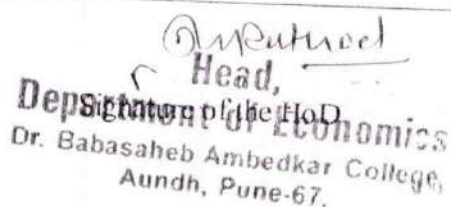 Head,
Department of Economics
Signature of the HoD
Dr. Babasaheb Ambedkar College,
Aundh, Pune-67.